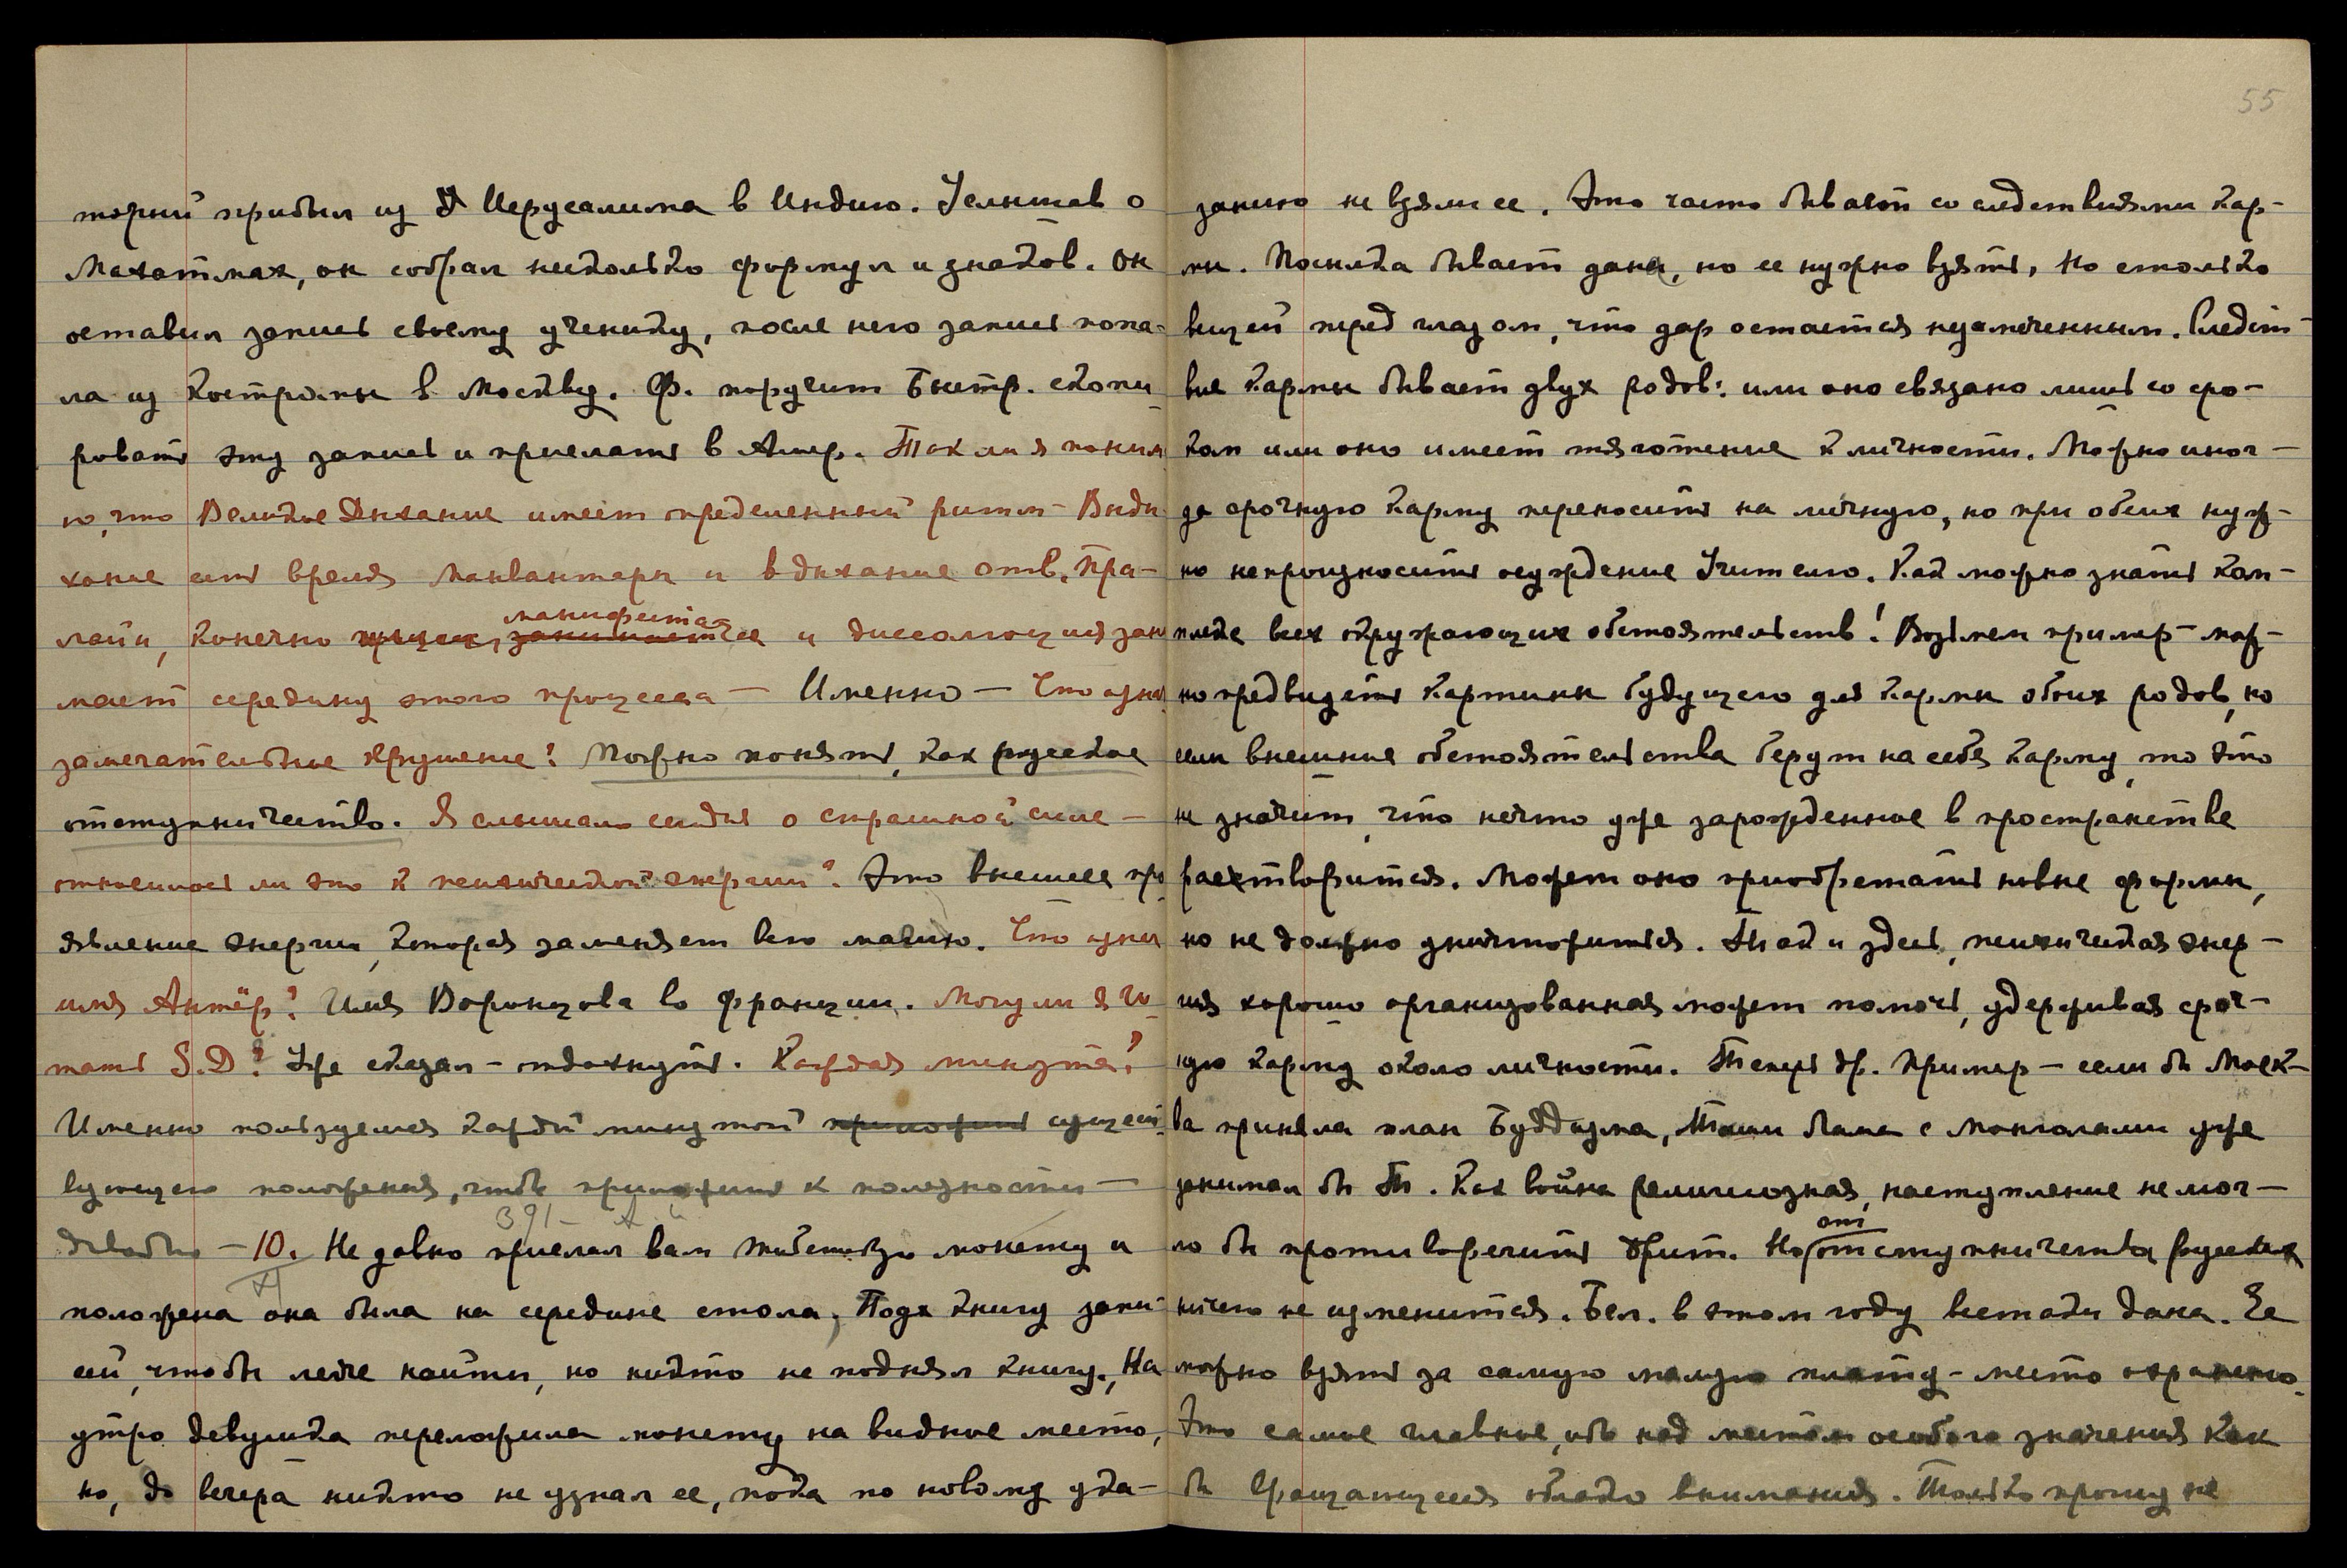 55
торый прибыл из Иерусалима в Индию. Услышав о
Махатмах, он собрал несколько формул и знаков. Он
оставил запись своему ученику, после него запись попа-
ла из Костромы в Москву. Ф. поручит Быстр. скопи-
ровать эту запись и прислать в Амер. Так ли я поним
ю, что Великое Дыхание имеет определенный ритм – Выды
хание есть время манвантары и вдыхание отв. пра-
лайи, конечно манифеста- ее и диссолюция зани
мает середину этого процесса – Именно – Что означ.
замечательное крушение? Можно понять, как русское
отступничество. Я слышала сегодня о страшной силе –
относилось ли это к психической энергии? Это внешнее про-
явление энергии, которая заменяет всю магию. Что означ
имя Антёр? Имя Воронцова во Франции. Могу ли я чи-
тать S.D? Уже сказал – отдохнуть. Каждая минута!
Именно пользуемся каждой минутой приложить сущест-
вующего положения, чтобы приложить к полезности –
довольно – 10. Не давно прислал вам тибетскую монету и
391 –
XI
положена она была на середине стола, Подх книгу запи-
сей, чтобы легче найти, но никто не поднял книгу. На
утро девушка переложила монету на видное место,
но, до вечера никто не узнал ее, пока по новому ука-
занию не взяли ее. Это часто бывает со следствиями кар-
мы. Посылка бывает дана, но ее нужно взять. Но столько
вещей перед глазом, что дар остается незамеченным. Следст-
вие кармы бывает двух родов: или оно связано лишь со сро-
ком или оно имеет тяготение к личности. Можно иног-
да срочную карму переносить на личную, но при обеих нуж-
но не произносить осуждение Учителю. Как можно знать ком-
плекс всех окружающих обстоятельств! Возьмем пример – мож-
но предвидеть картины будущего для кармы обоих родов, но
если внешние обстоятельства берут на себя карму, то это
не значит, что нечто уже зарожденное в пространстве
растворится. Может оно приобретать новые формы,
но не должно уничтожиться. Так и здесь, психическая энер-
гия хорошо организованная может помочь, удерживая сроч-
ную карму около личности. Теперь др. пример – если бы Моск-
ва приняла план Буддизма, Таши Лама с монголами уже
занимал бы Т. Как война религиозная, наступление не мог-
ло бы противоречить Брит. Но от отступничества русских
ничего не изменится. Бел. в этом году всетаки дана. Ее
можно взять за самую малую плату – место охранено.
Это самое главное, ибо над местом особого значения как
бы вращающееся облако внимания. Только прошу не